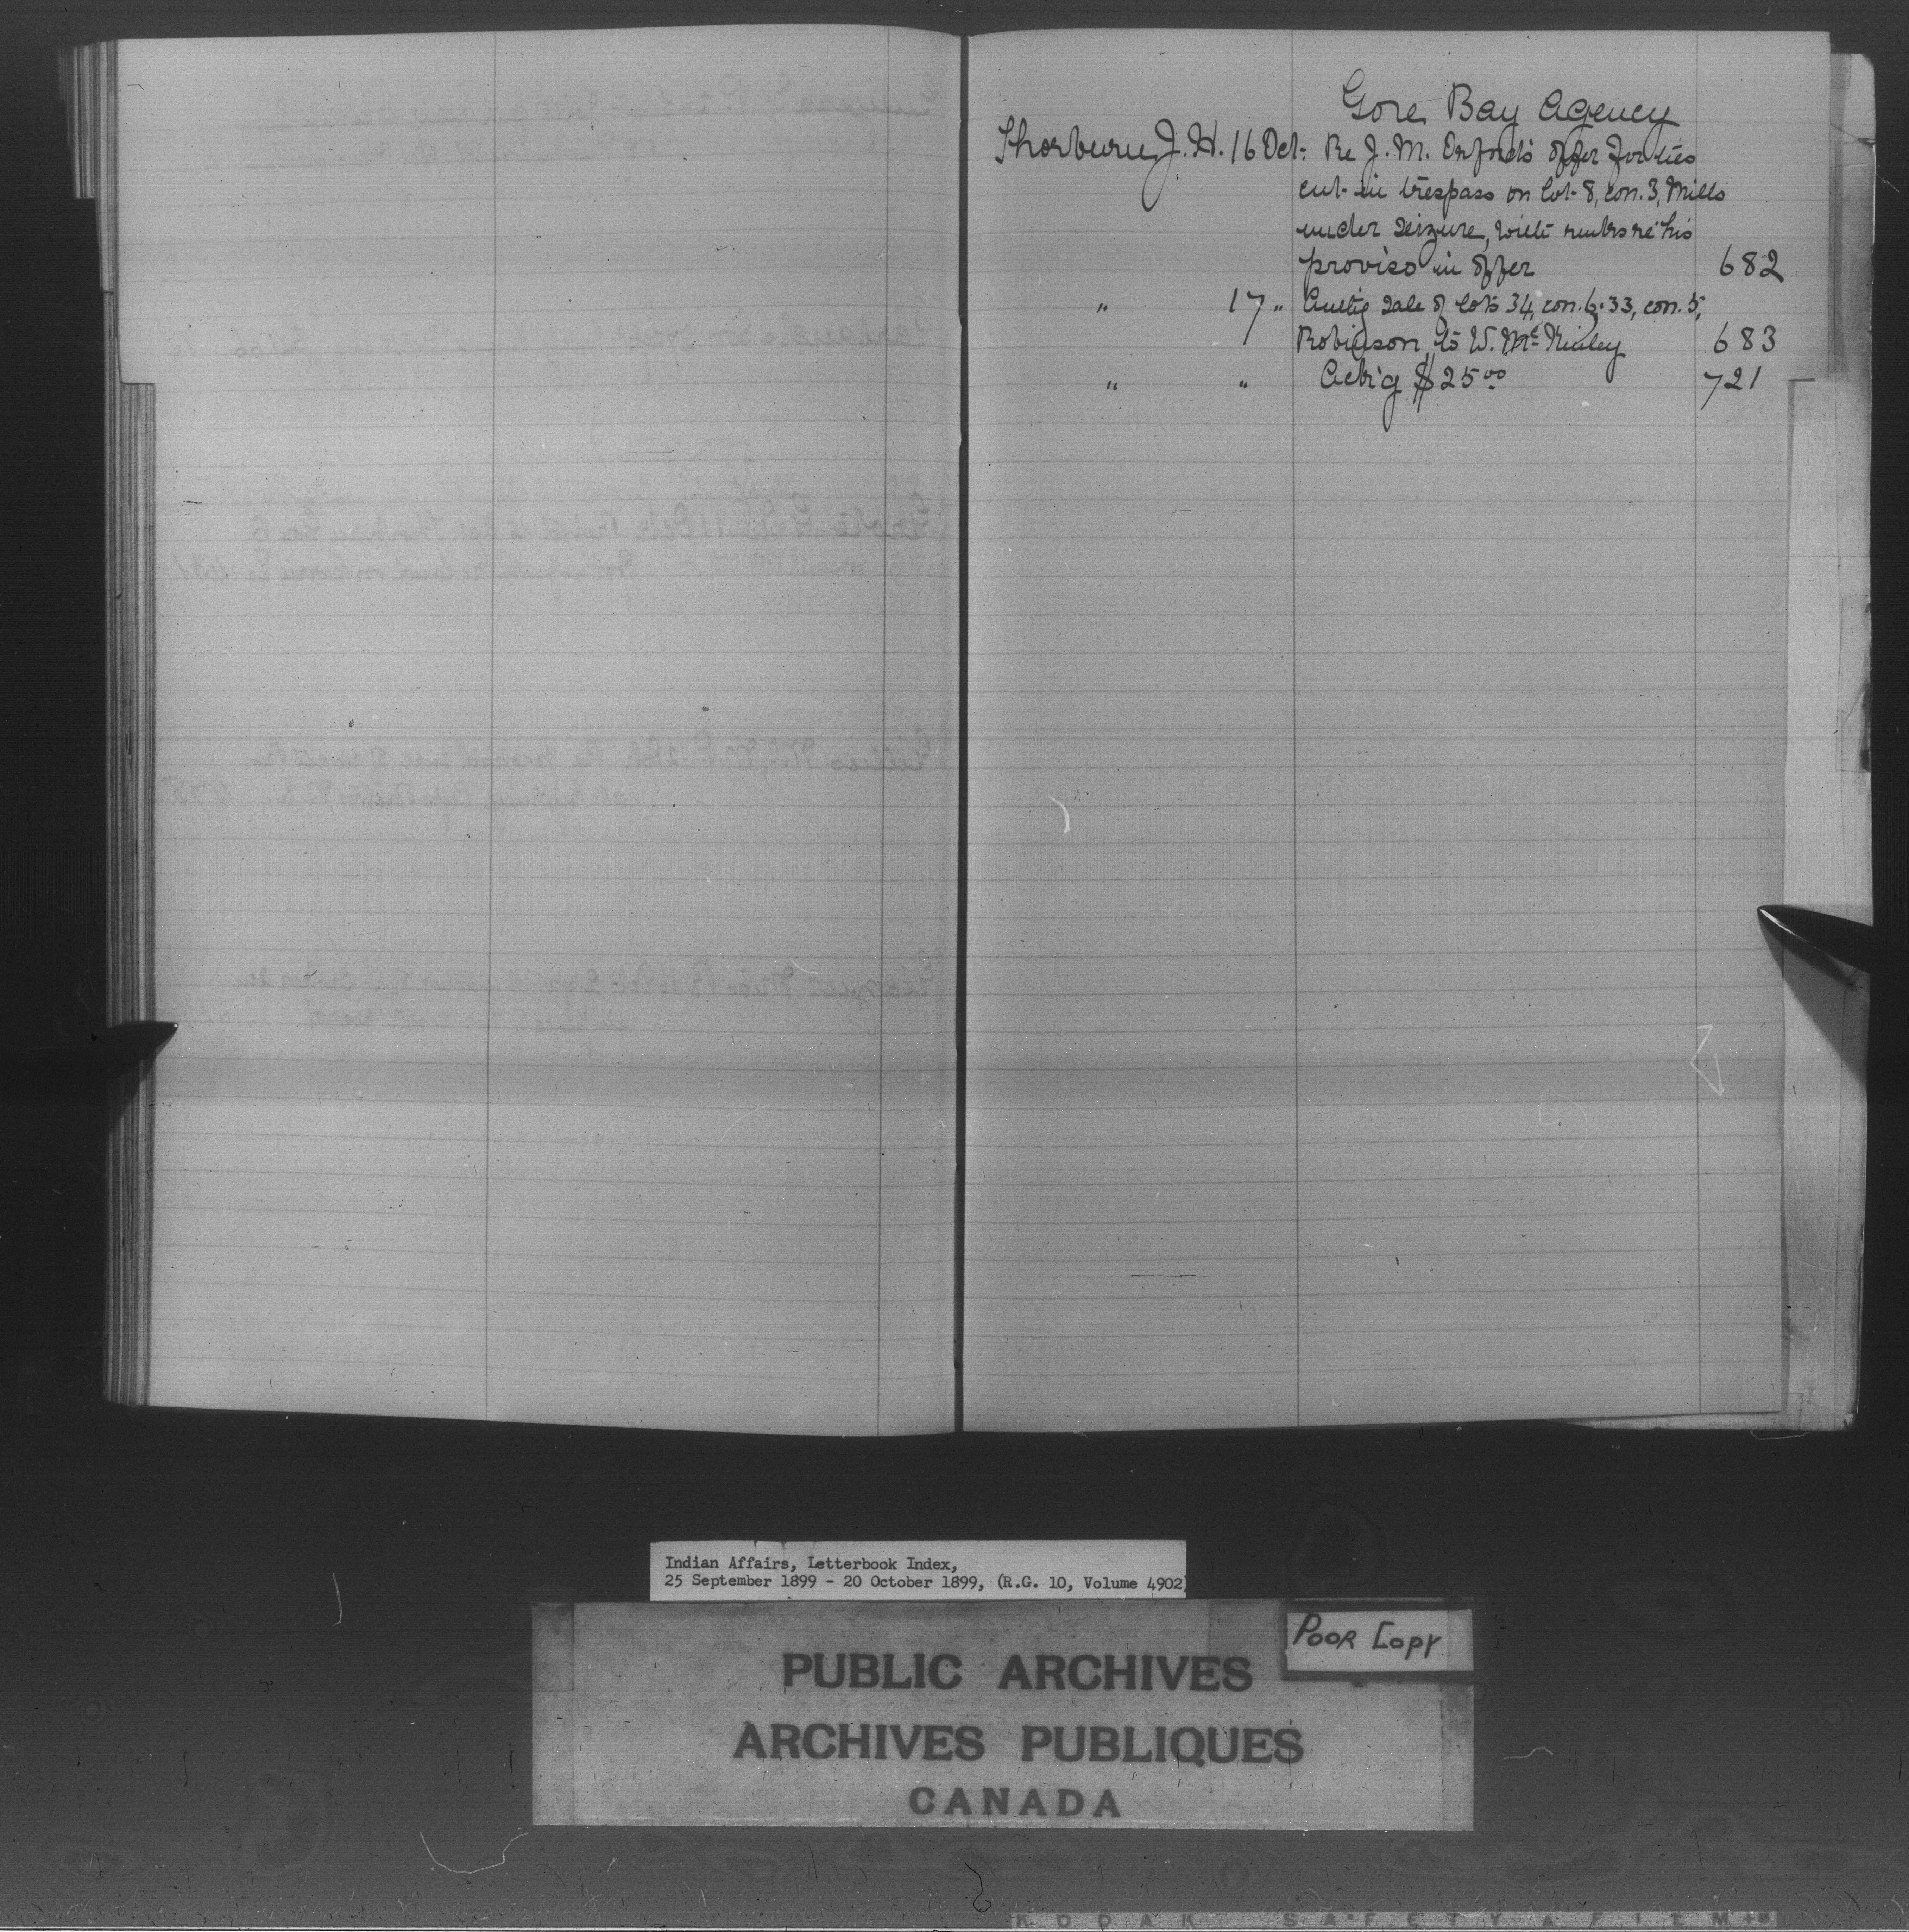 Gore Bay Agency
Thorburn, J. H. 16 Oct: Re J. M. Orford's offer for ties
cut in trespass on lot 8, con. 3, Mills
under seizure, with his
proviso in offer 682
" 17 " sale of lots 34, con. 6, 33, con. 5,
Robinson, to W. McKinley 683
" " Ack'g $25.00 721
Indian Affairs, Letterbook Index,
25 September 1899 - 20 October 1899, (R.G. 10, Volume 4902)
Poor Copy
PUBLIC ARCHIVES
ARCHIVES PUBLIQUES
CANADA
KODAK SAFETY FILM